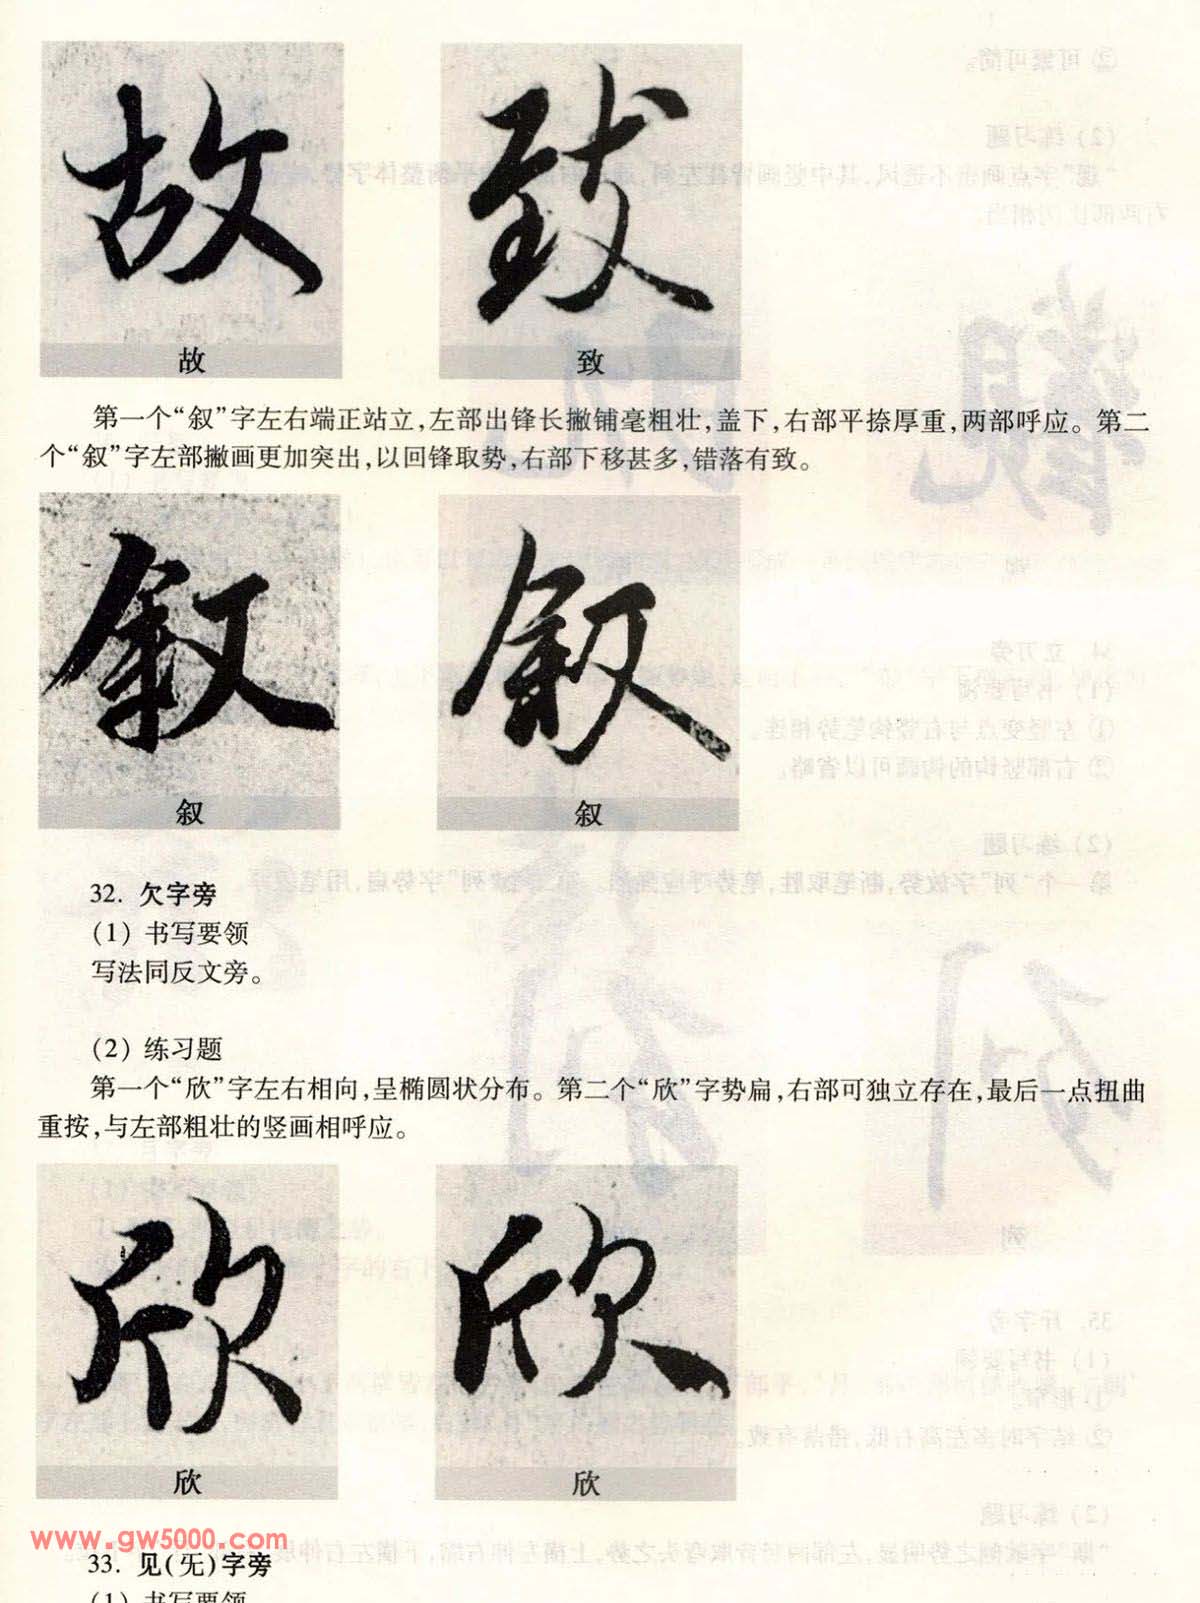 故 致
故 致
第一个“叙”字左右端正站立,左部出锋长撇铺毫粗壮,盖下,右部平捺厚重,两部呼应。第二
个“叙”字左部撇画更加突出,以回锋取势,右部下移甚多,错落有致。
叙 叙
叙 叙
32. 欠字旁
(1) 书写要领
写法同反文旁。
(2) 练习题
第一个“欣”字左右相向,呈椭圆状分布。第二个“欣”字势扁,右部可独立存在,最后一点扭曲
重按,与左部粗壮的竖画相呼应。
欣 欣
欣 欣
www.gw5000.com
33. 见(旡)字旁
(1) 书写要领